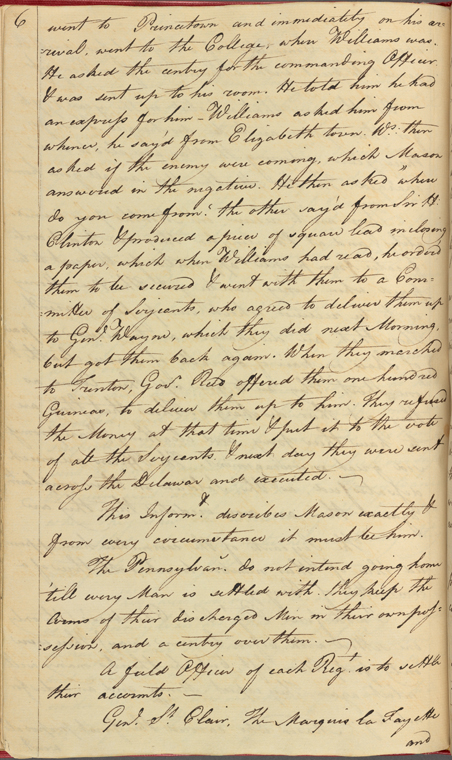 6
went to Princetown and immediately on his ar-
-rival, went to the College, where Williams was.
He asked the centry for the commanding Officer
& was sent up to his room. He told him he had
an express for him – Williams asked him from
whence, he say'd from Elizabeth town. Ws. then
asked if the enemy were coming, which Mason
answered in the negative. He then asked "where
do you come from". the other say'd from Sir H:
Clinton & produced a piece of square lead inclosing
a paper, which when Williams had read, he ordered
them to be secured & went with them to a Com-
-mittee of Serjeants, who agreed to deliver them up
to Genl. Wayne, which they did next Morning,
but got them back again. When they marched
to Trenton, Govr. Reed offered them one hundred
Guineas, to deliver them up to him. They refused
the Money at that time & put it to the vote
of all the Serjeants & next day they were sent
across the Delawar and executed. —
This Informt. describes Mason exactly &
from every circumstance it must be him.
The Pennsylvans. do not intend going home
'till every Man is settled with. They keep the
Arms of their discharged Men in their own pos-
-session, and a centry over them. —
A field Officer of each Regt. is to settle
their accounts. —
Genl. St. Clair, The Marquis la Fayette
and